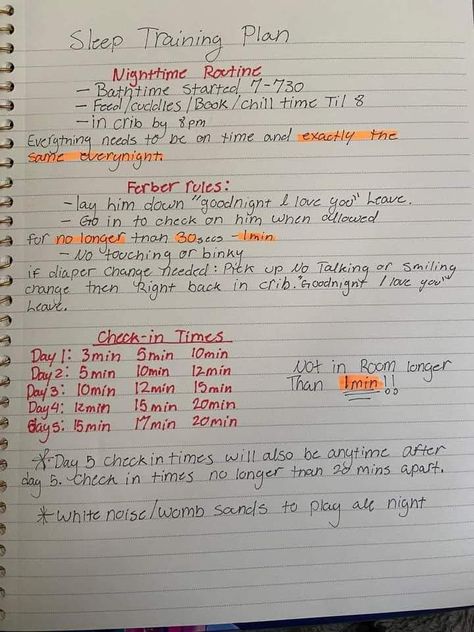 Sleep Training Plan
Nighttime Routine
- Bathtime started 7-730
- Feed/cuddles/Book/chill time Til 8
- in crib by 8pm
Everything needs to be on time and exactly the
same everynight.
Ferber rules:
- lay him down "goodnight I love you" Leave.
- Go in to check on him when allowed
for no longer than 30secs - 1min
- No touching or binky
if diaper change needed: Pick up No Talking or Smiling
change then Right back in crib. "Goodnight I love you"
Leave.
Check-in Times
Day 1: 3min 5min 10min
Day 2: 5min 10min 12min
Day 3: 10min 12min 15min
Day 4: 12min 15min 20min
Day 5: 15min 17min 20min
Not in Room longer
Than 1min!!
* Day 5 check in times will also be anytime after
day 5. Check in times no longer than 20 mins apart.
* White noise/womb sands to play all night